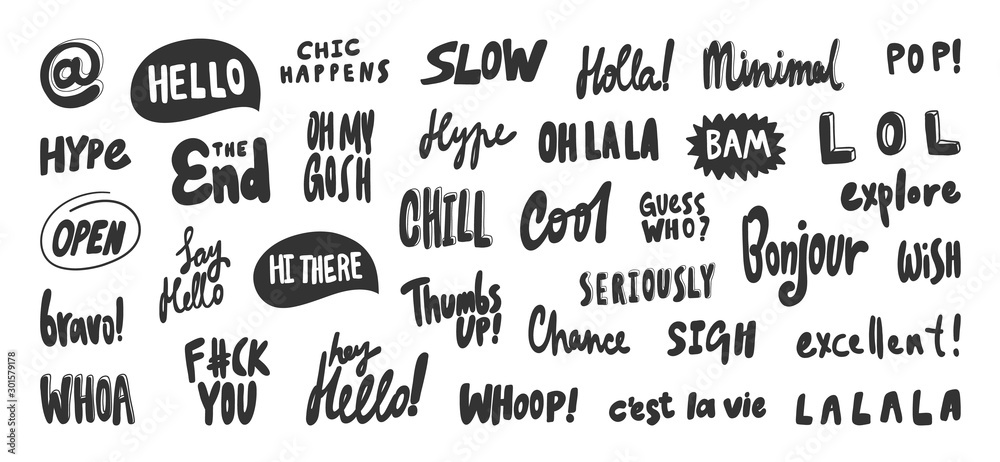 @
HELLO
CHIC
HAPPENS
SLOW
Holla!
Minimal
POP!
HYPe
THE
End
OH MY
GOSH
Hype
OH LA LA
BAM
LOL
OPEN
Say
Hello
HI THERE
CHILL
Cool
GUESS
WHO?
Bonjour
explore
WiSH
bravo!
Thumbs
UP!
SERIOUSLY
Chance
SIGH
excellent!
WHOA
F#CK
YOU
hey
Hello!
WHOOP!
c'est la vie
LALALA
Adobe Stock | #301579178